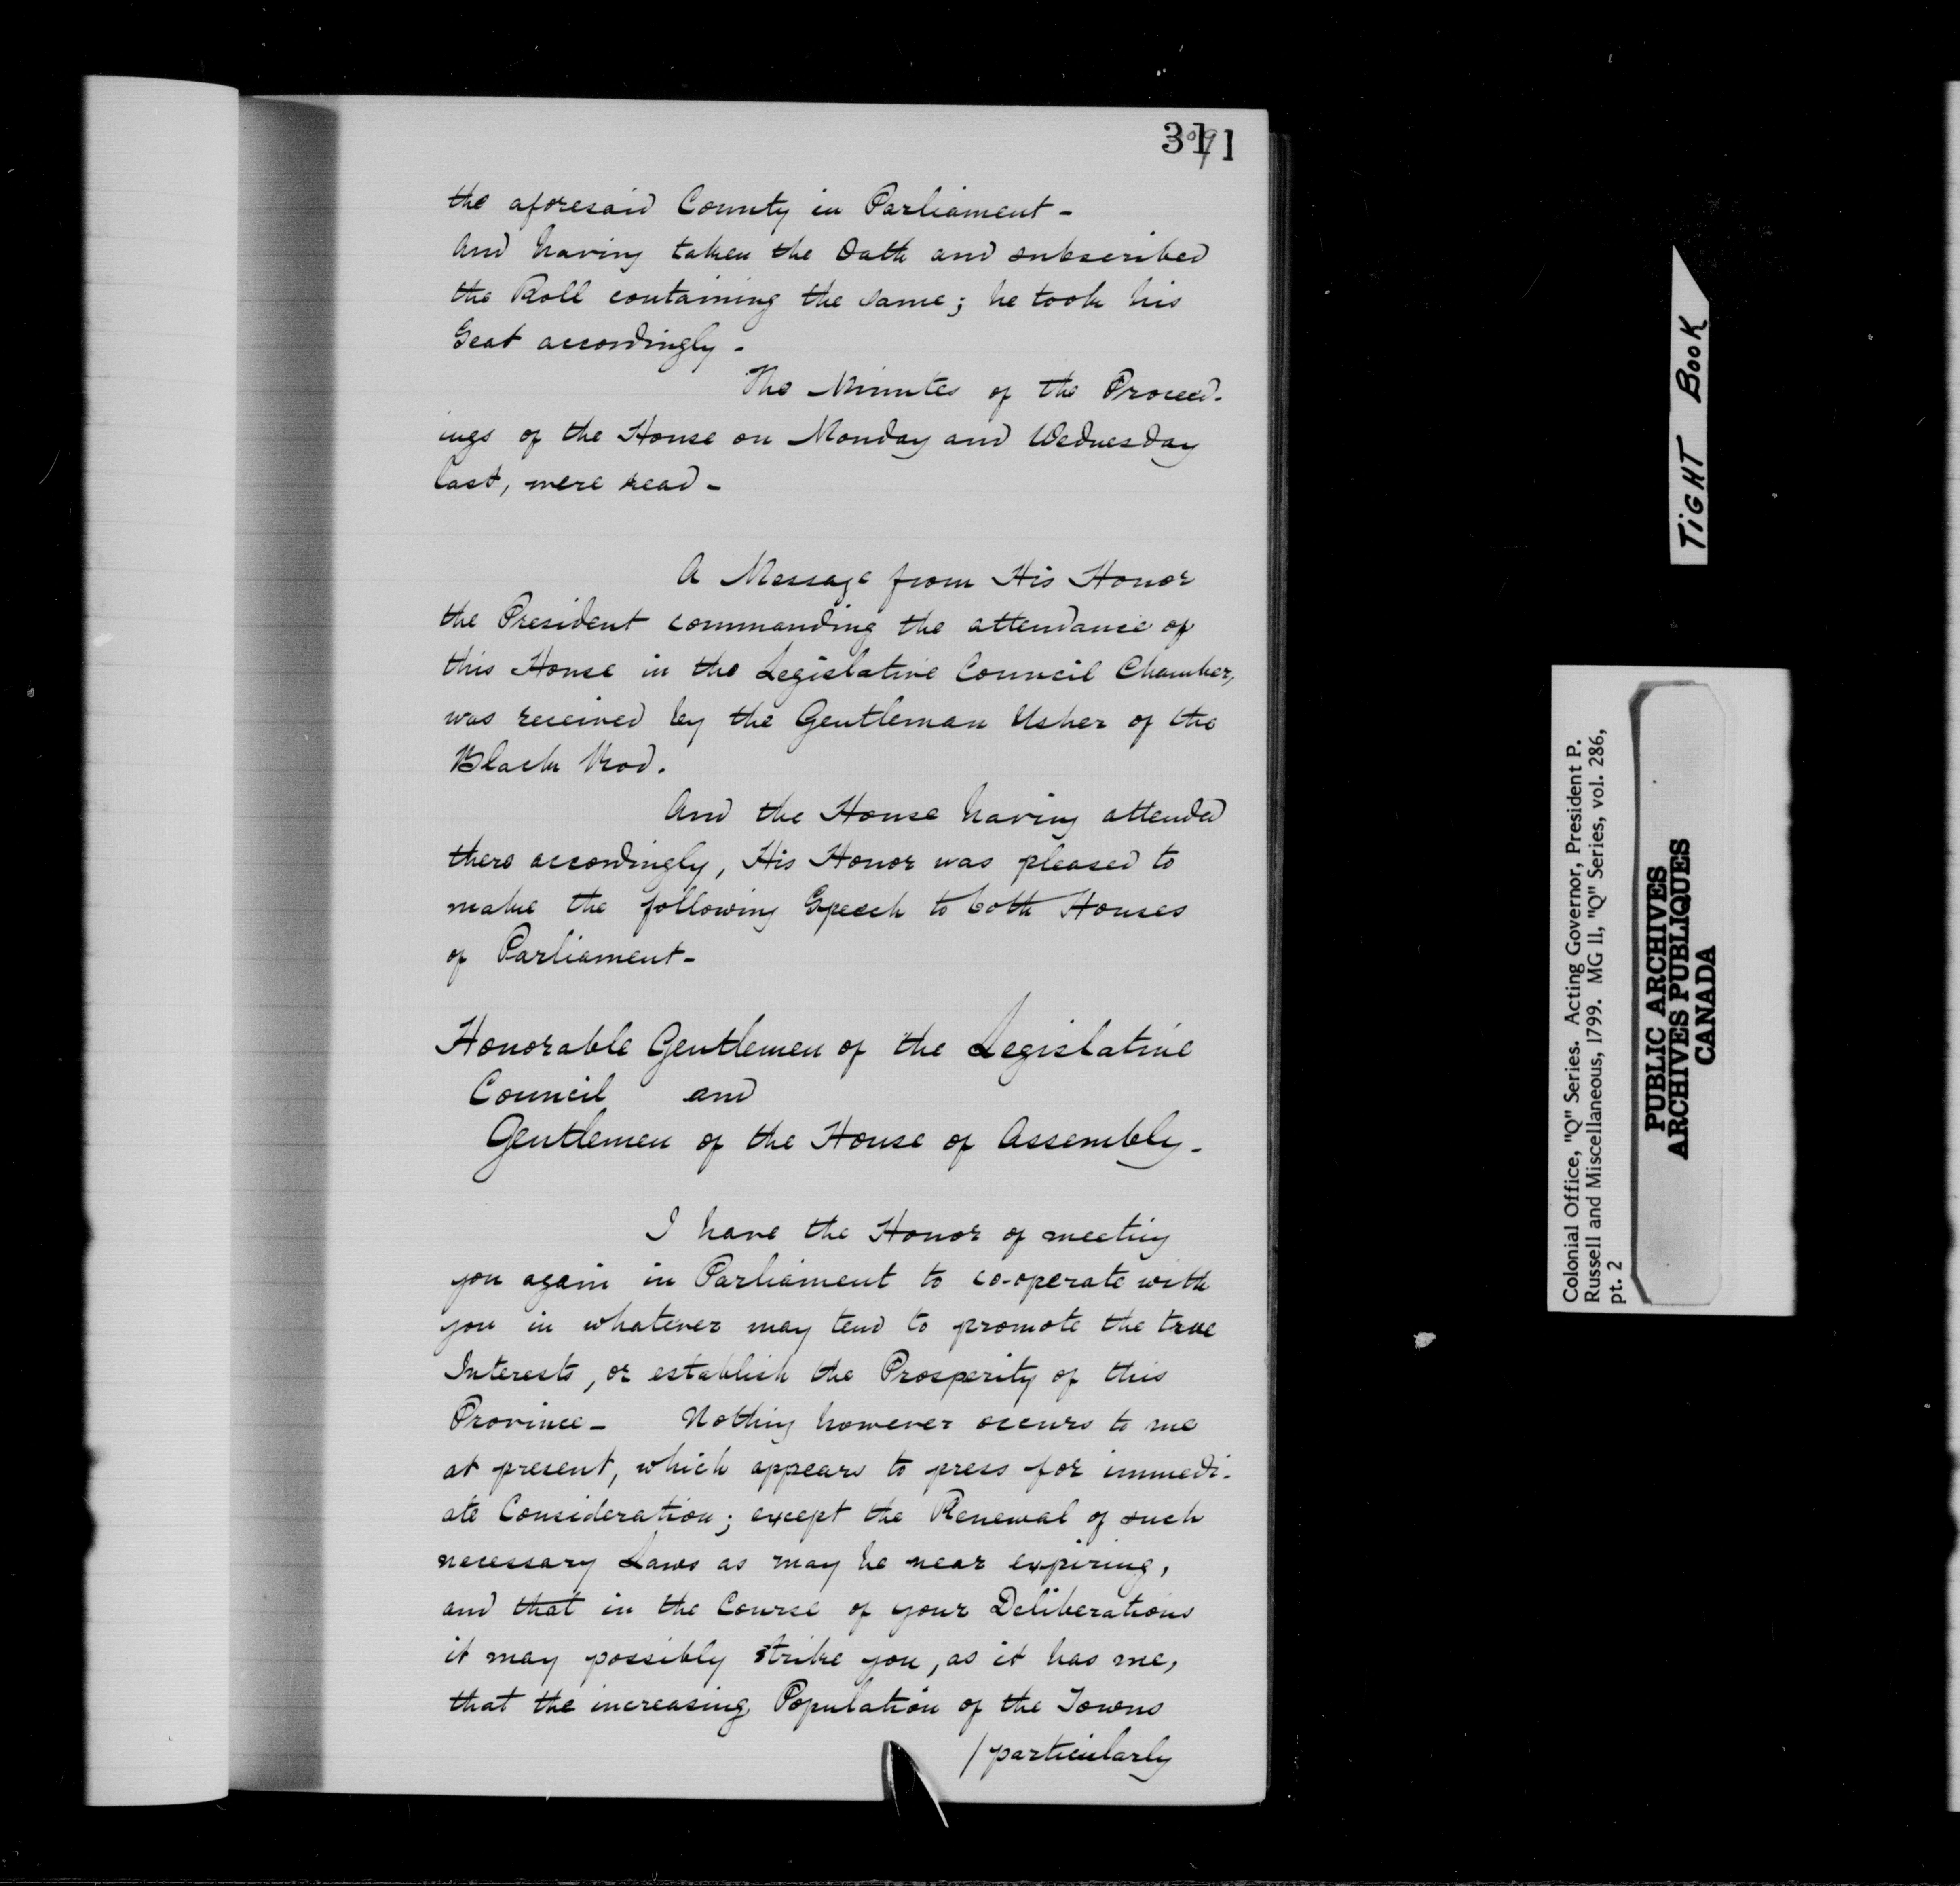 311
the aforesaid County in Parliament -
And having taken the Oath and subscribed
the Roll containing the same; he took his
Seat accordingly -
The Minutes of the Proceed-
ings of the House on Monday and Wednesday
last, were read -
A Message from His Honor
the President commanding the attendance of
this House in the Legislative Council Chamber,
was received by the Gentleman Usher of the
Black Rod.
And the House having attended
there accordingly, His Honor was pleased to
make the following Speech to both Houses
of Parliament -
Honorable Gentlemen of the Legislative
Council and
Gentlemen of the House of Assembly -
I have the Honor of meeting
you again in Parliament to co-operate with
you in whatever may tend to promote the true
Interests, or establish the Prosperity of this
Province - Nothing however occurs to me
at present, which appears to press for immedi-
ate Consideration; except the Renewal of such
necessary Laws as may be near expiring,
and that in the Course of your Deliberations
it may possibly strike you, as it has me,
that the increasing Population of the Towns
/particularly
TIGHT BOOK
Colonial Office, "Q" Series. Acting Governor, President P.
Russell and Miscellaneous, 1799. MG 11, "Q" Series, vol. 286,
pt. 2
PUBLIC ARCHIVES
ARCHIVES PUBLIQUES
CANADA